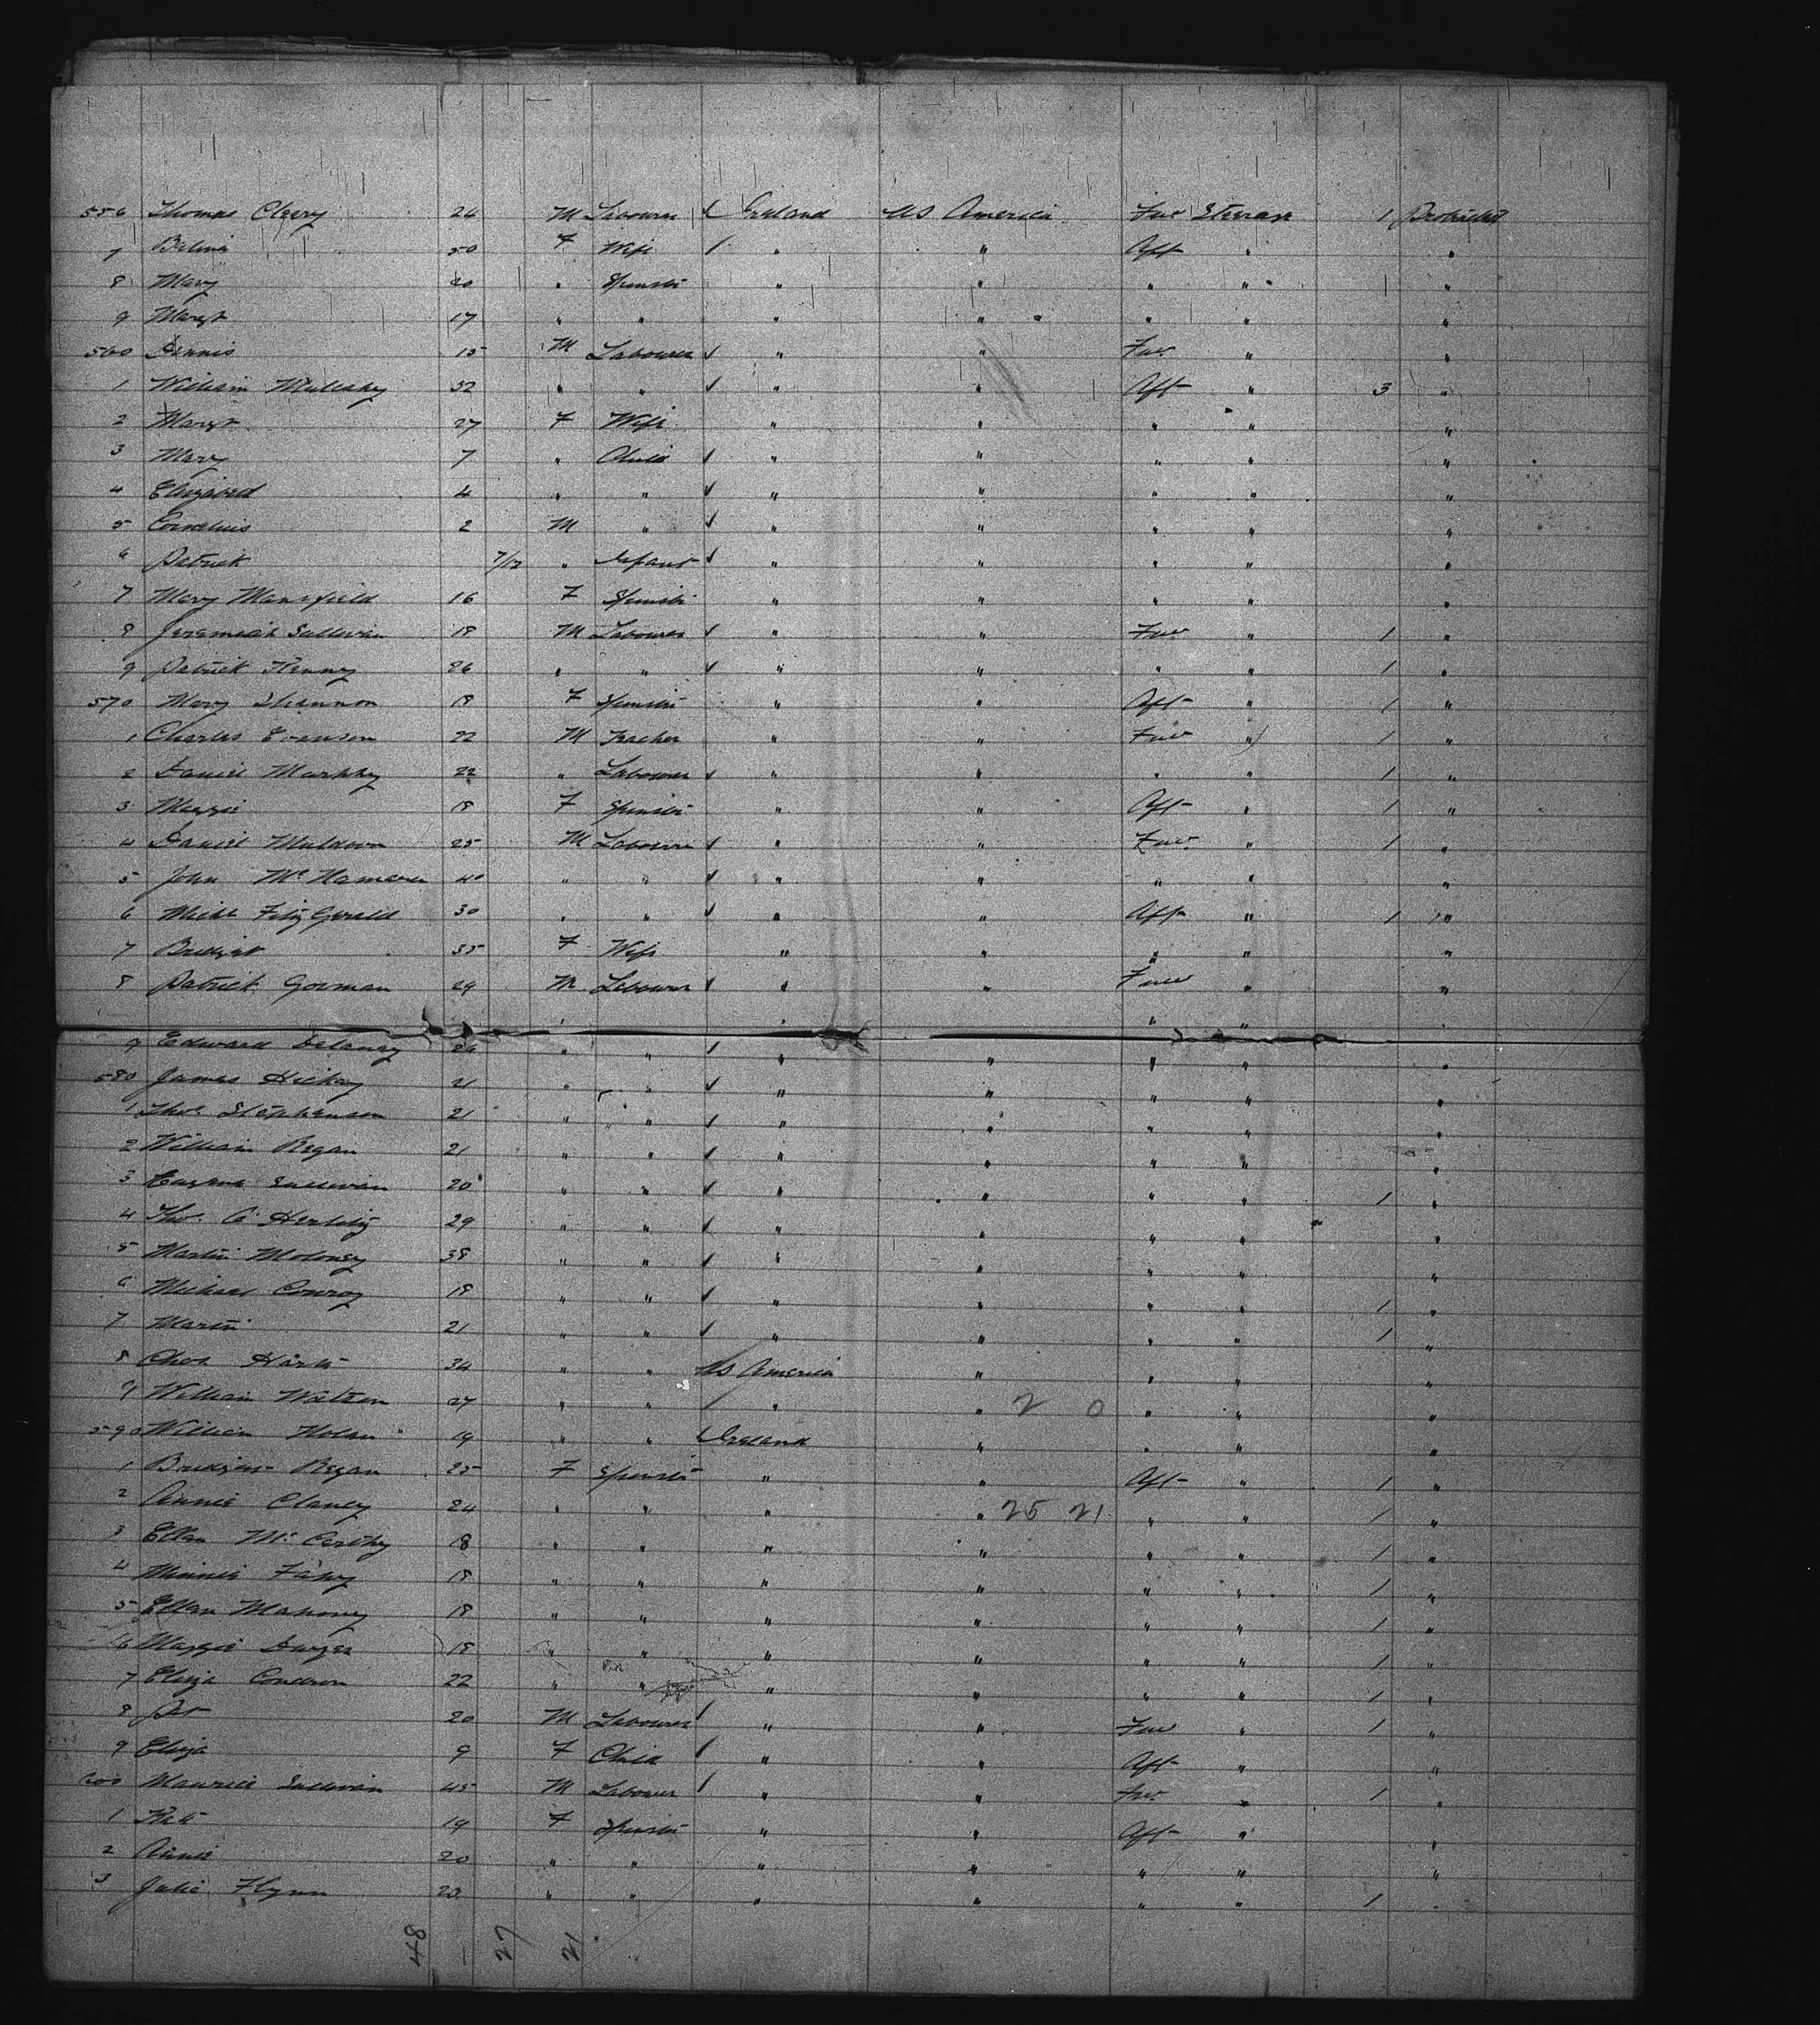 556 Thomas Cleary 24 M Labourer Ireland US America Fwd Steerage 1 Protracted
7 Belina 50 F Wife " " Aft " "
8 Mary 20 " Spinster " " " " 1 "
9 Margt 17 " " " " " " "
560 Dennis 15 M Labourer " " Fwd " "
1 William Mullahy 32 " " " " Aft " 3 "
2 Margt 27 F Wife " " " " "
3 Mary 7 " Child " " " " "
4 Elizabeth 4 " " " " " " "
5 Cornelius 2 M " " " " " "
6 Patrick 7/12 " Infant " " " " "
7 Mary Mansfield 16 F Spinster " " " " "
8 Jeremiah Sullivan 18 M Labourer " " Fwd " 1 "
9 Patrick Kenny 26 " " " " " " 1 "
570 Mary Shannon 18 F Spinster " " Aft " 1 "
1 Charles Evanson 22 M Teacher " " Fwd " 1 "
2 Daniel Murphy 22 " Labourer " " " " 1 "
3 Maggie 18 F Spinster " " Aft " 1 "
4 Daniel Muldoon 25 M Labourer " " Fwd " 1 "
5 John McNamara 40 " " " " " " "
6 Michl FitzGerald 30 " " " " Aft " 1 "
7 Bridget 35 F Wife " " " " "
8 Patrick Gorman 29 M Labourer " " Fwd " "
9 Edward Delaney 26 " " " " " " "
580 James Hickey 21 " " " " " " "
1 Thos Stephenson 21 " " " " " " "
2 William Regan 21 " " " " " " "
3 Eugene Sullivan 20 " " " " " " 1 "
4 Thos O'Herlihy 29 " " " " " " "
5 Martin Moloney 38 " " " " " " "
6 Michael Conroy 18 " " " " " " 1 "
7 Martin 21 " " " " " " 1 "
8 Chas 34 " " US America " " " "
9 William Watson 27 " " " " 2 0 " " "
590 William Nolan 19 " " Ireland " " " "
1 Bridget Regan 25 F Spinster " " Aft " 1 "
2 Annie Clancy 24 " " " " 25 21 " " 1 "
3 Ellen McCarthy 18 " " " " " " 1 "
4 Minnie Fahy 18 " " " " " " 1 "
5 Ellen Mahoney 18 " " " " " " 1 "
6 Maggie Dwyer 18 " " " " " " 1 "
7 Eliza Condron 22 " " " " " " 1 "
8 Pat 20 M Labourer " " Fwd " 1 "
9 Eliza 9 F Child " " Aft " "
600 Maurice Sullivan 45 M Labourer " " Fwd " 1 "
1 Kate 19 F Spinster " " Aft " "
2 Annie 20 " " " " " " "
3 Julia Flynn 23 " " " " " " 1 "
48 27 21